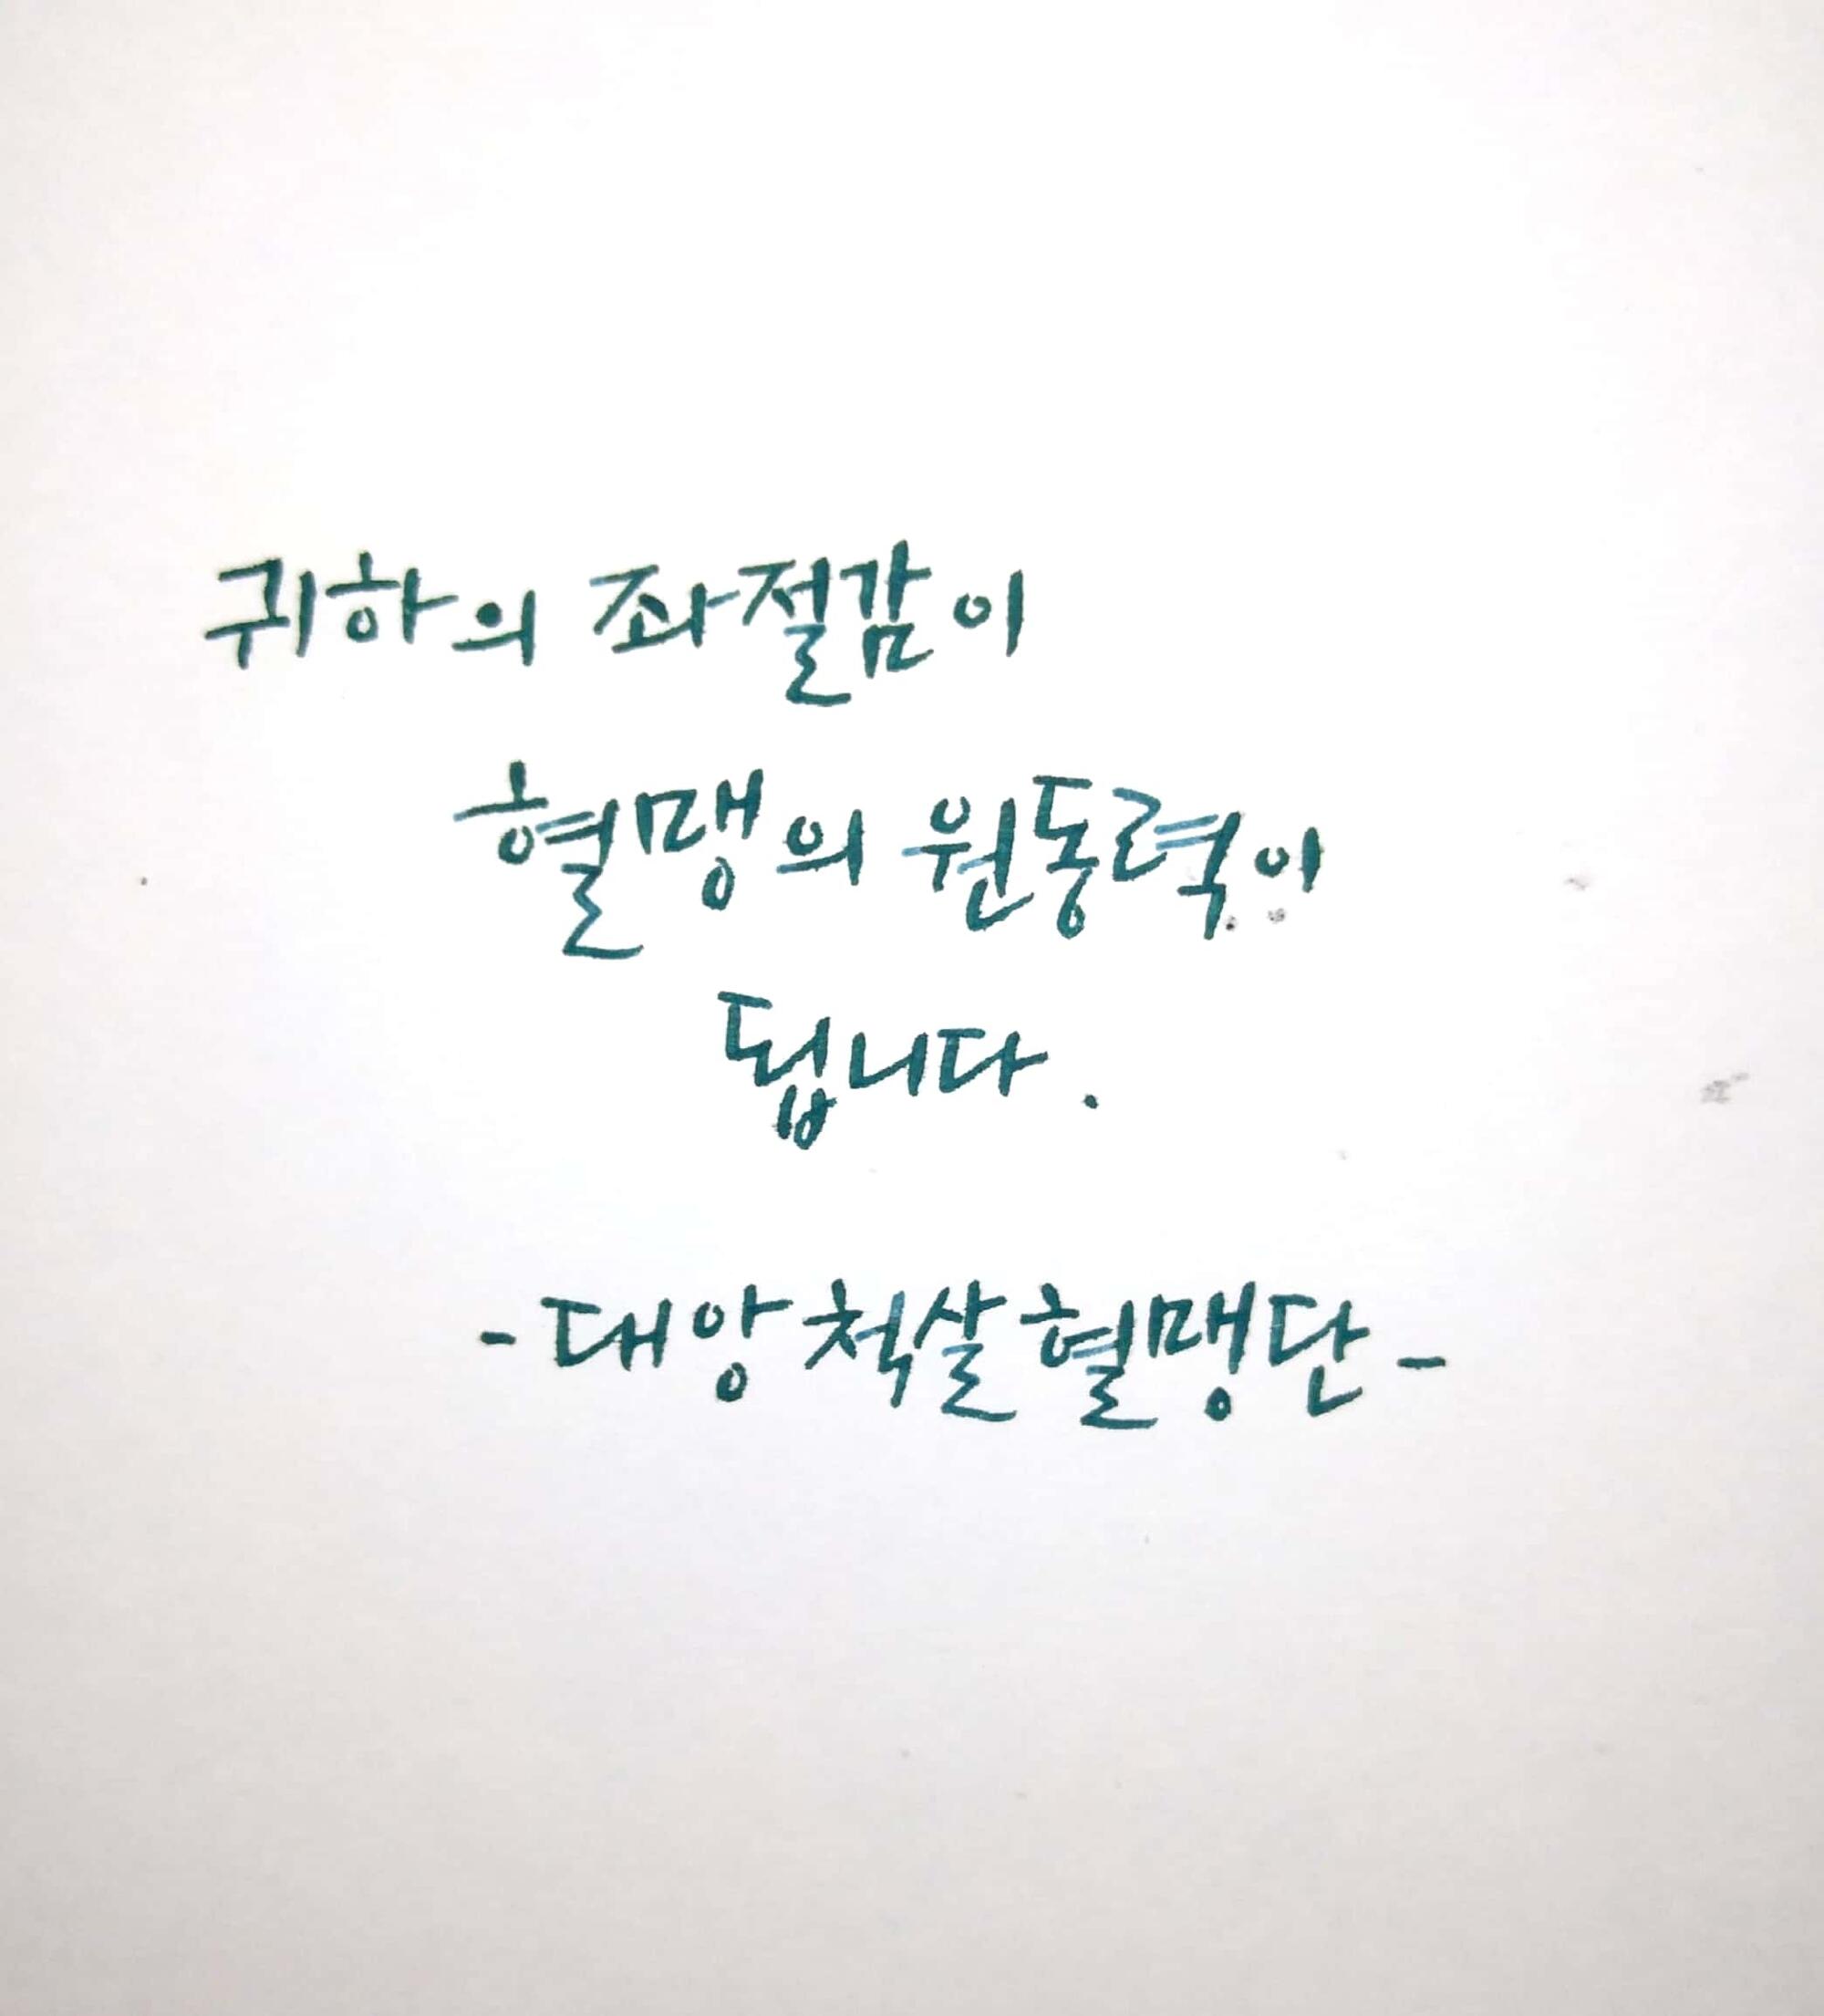 귀하의 좌절감이
혈맹의 원동력이
됩니다.
-대앙척살혈맹단-